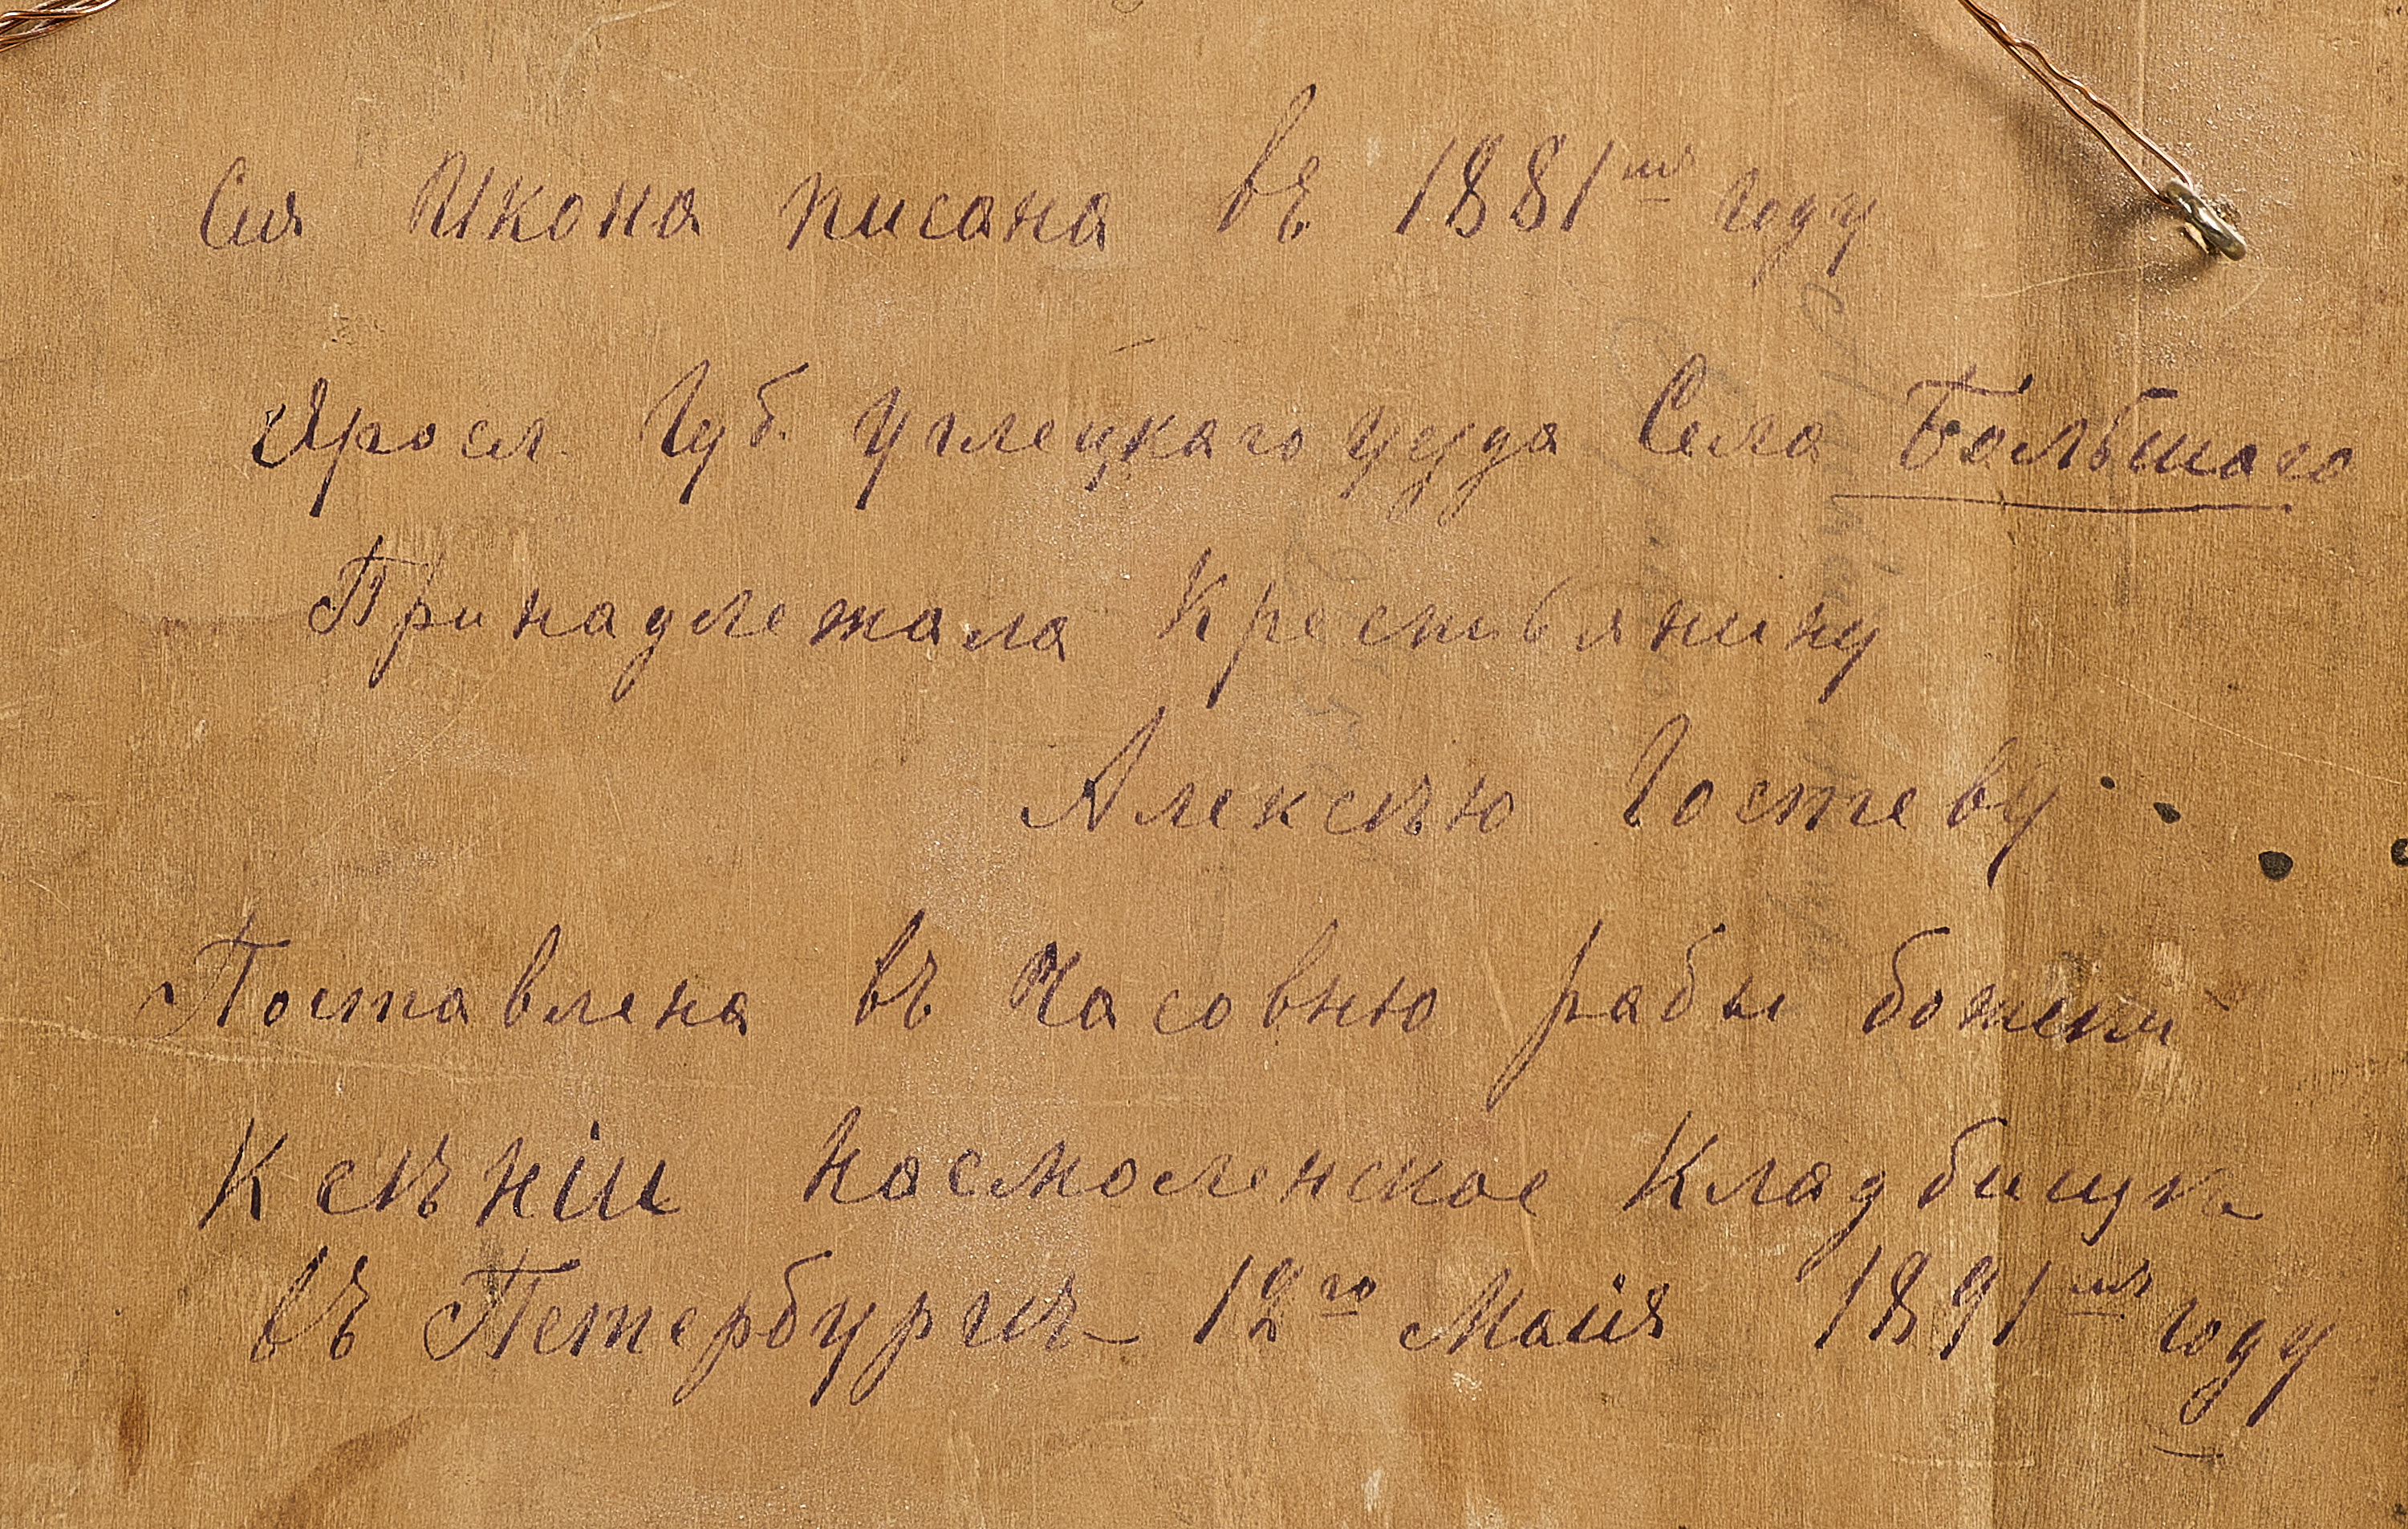 Сия Икона писана въ 1881мъ году
Яросл. Губ. Углецкаго уезда Села Большаго
Принадлежала Крестьянину
Алексѣю Гостеву
Поставлена въ Часовню рабы божеи
Ксѣніи насмоленское Кладбище
въ Петербургѣ 12го Маия 1891мъ году